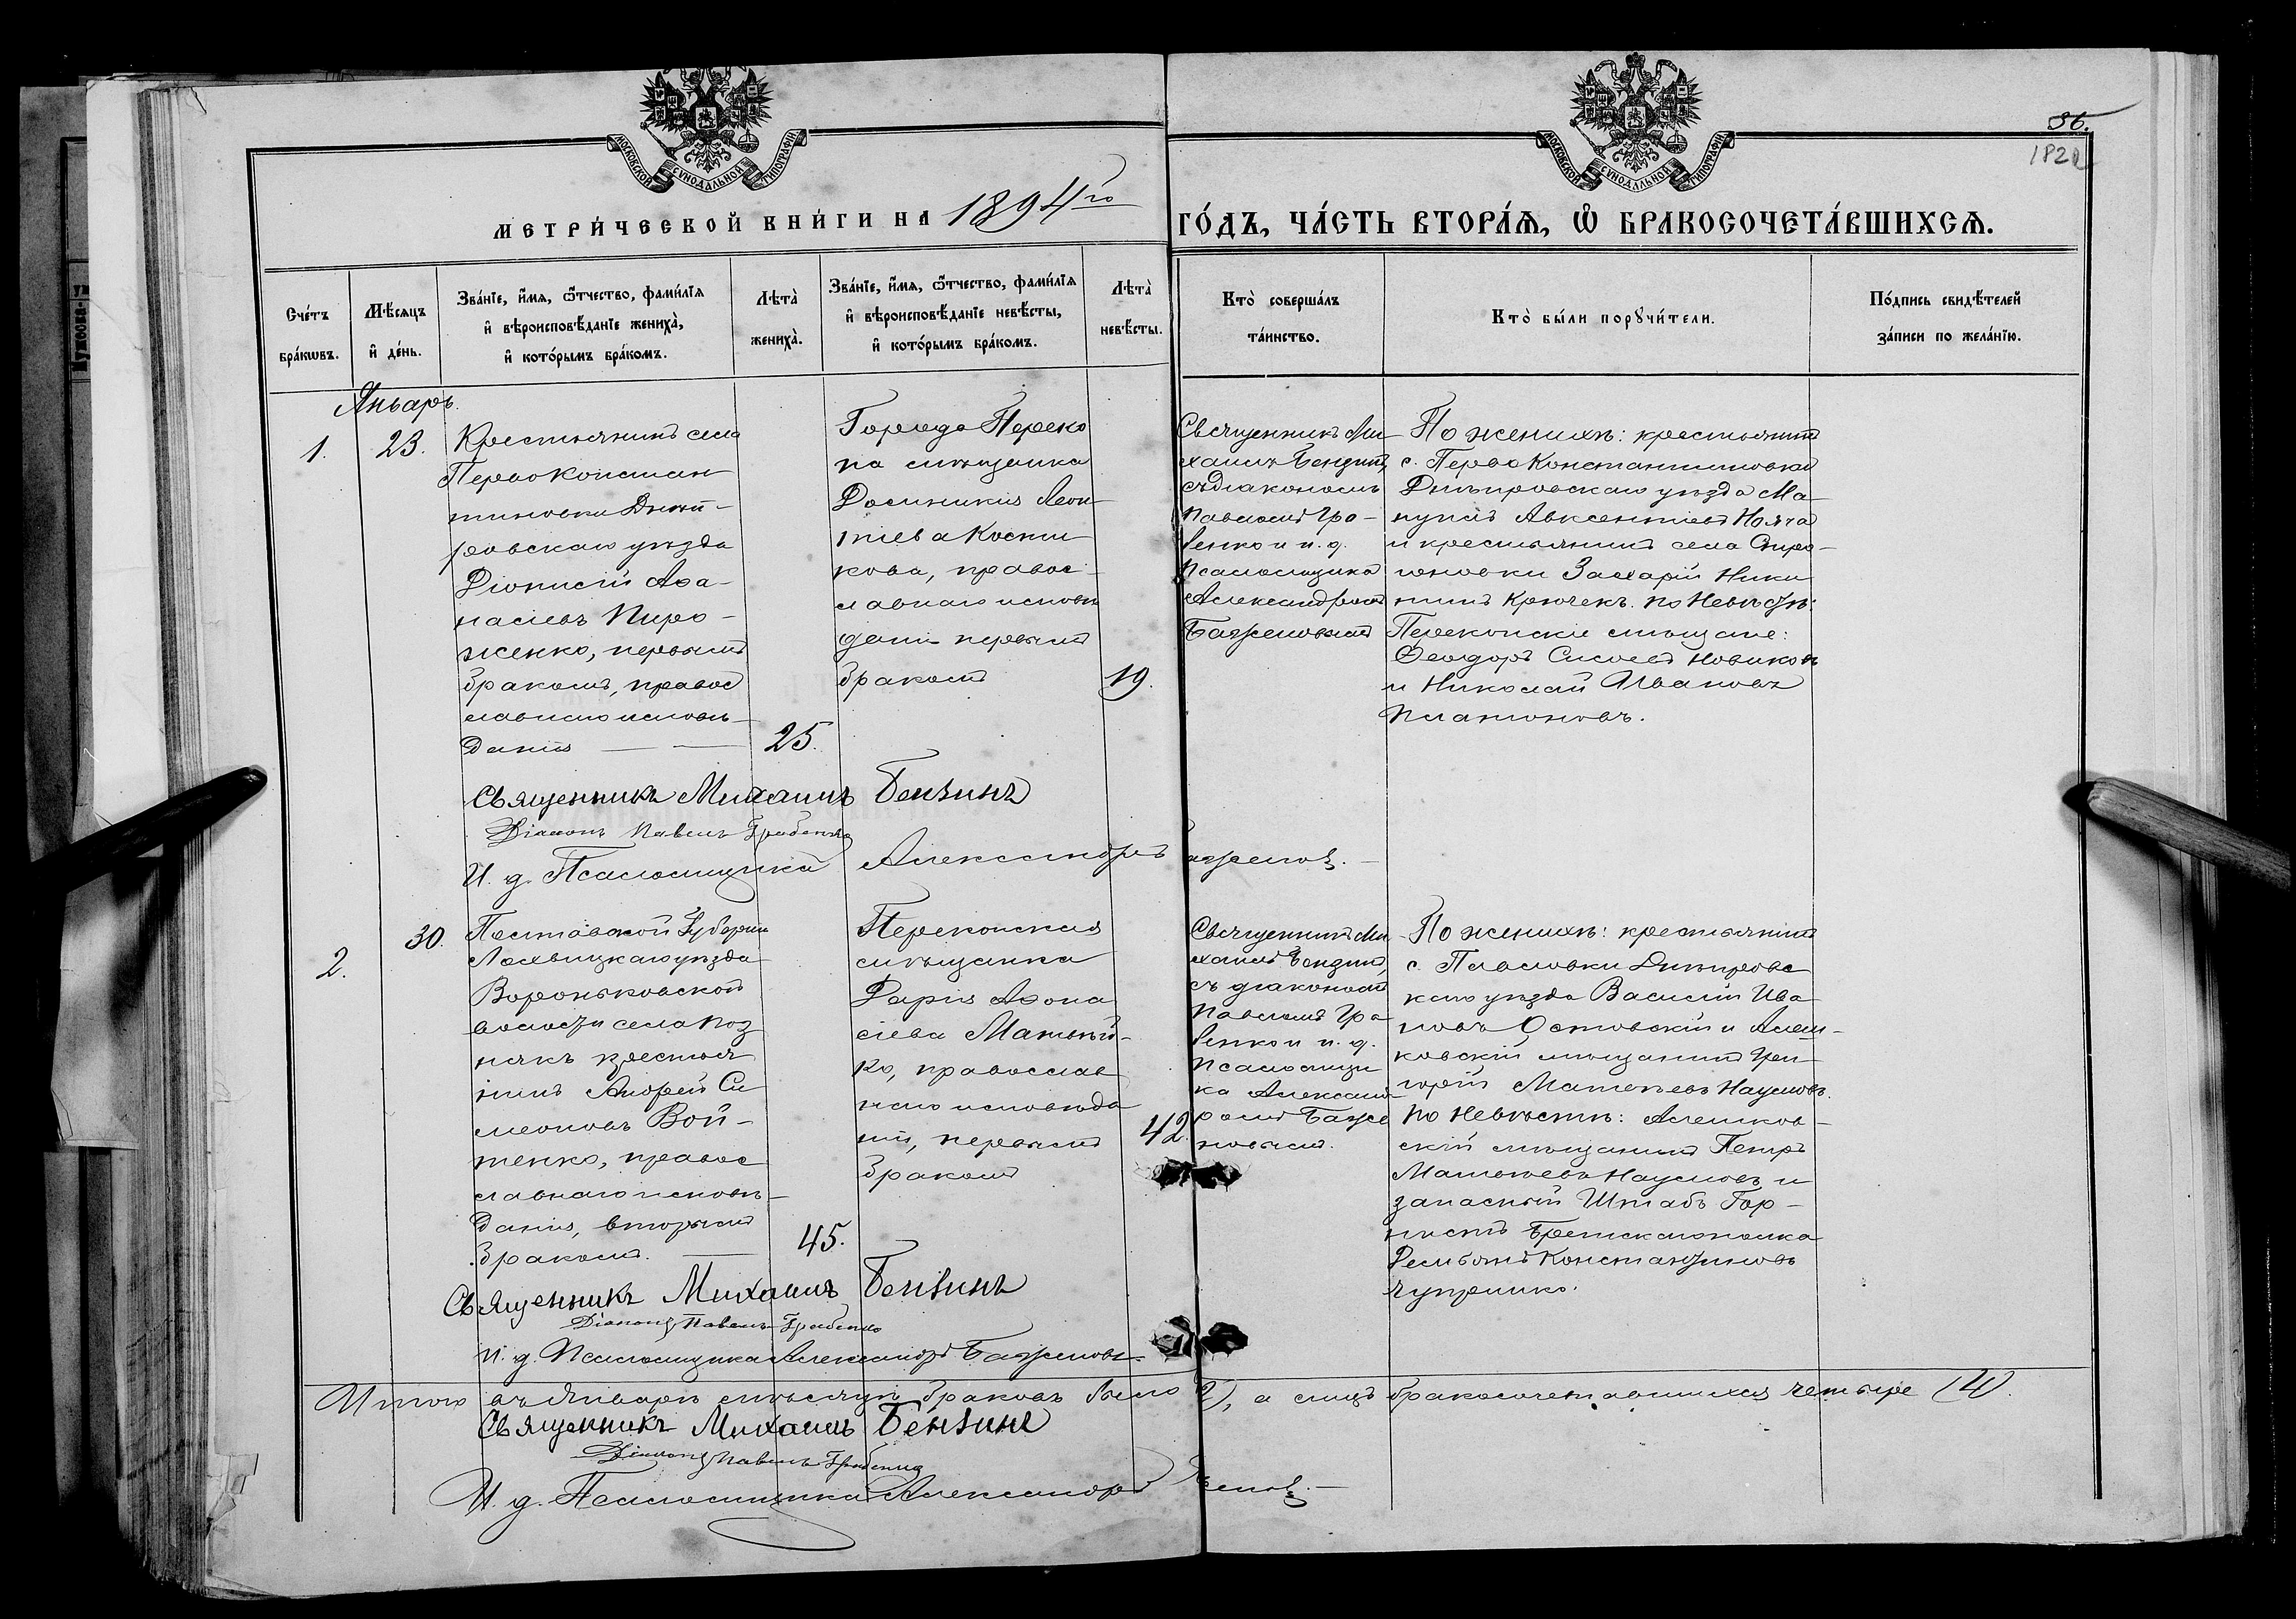 36.
182
МОСКОВСКОЙ СѴНОДАЛЬНОЙ ТИПОГРАФІИ
МОСКОВСКОЙ СѴНОДАЛЬНОЙ ТИПОГРАФІИ
МЕТРИ́ЧЕСКОЙ КНИ́ГИ НА 1894го
ГО́ДЪ, ЧА́СТЬ ВТОРА́Я, Ѡ БРАКОСОЧЕТА́ВШИХСЯ.
Сче́тъ
бра́кѡвъ.
Мѣ́сяцъ
и҆ де́нь.
Зва́нїе, и҆́мя, ѻ҆́тчество, фами́лїя
и҆ вѣроисповѣ́данїе жениха̀,
и҆ кото́рымъ бра́комъ.
Лѣта̀
жениха̀.
Зва́нїе, и҆́мя, ѻ҆́тчество, фами́лїя
и҆ вѣроисповѣ́данїе невѣ́сты,
и҆ кото́рымъ бра́комъ.
Лѣта̀
невѣ́сты.
Кто̀ соверша́лъ
та́инство.
Кто̀ бы́ли порꙋчи́тели.
По́дпись свидѣ́телей
за́писи по жела́нїю.
Январь.
1.
23.
Крестьянинъ села
Первоконстан
тиновки Днѣп-
ровскаго уѣзда
Діонисій Аѳа-
насіевъ Пиро-
женко, первымъ
бракомъ, правос
лавнаго исповѣ-
данія
25.
Города Переко
па мѣщанка
Домникія Леон-
тіева Кости
кова, правос-
лавнаго исповѣ
данія первымъ
бракомъ
19.
Священникъ Ми-
хаилъ Бензинъ,
съ діакономъ
Павломъ Гра-
бенко и и. д.
Псаломщика
Александромъ
Баженовымъ
По женихѣ: крестьянинъ
с. Перво Константиновки
Днѣпровскаго уѣзда Ма-
нуилъ Авксентіевъ
и крестьянинъ села
Захарій Ники
тинъ Крючекъ. по Невѣстѣ:
Перекопскіе мѣщане:
Ѳеодоръ Новиковъ
и Николай Ивановъ
Платоновъ.
Священникъ Михаилъ Бензинъ
Діаконъ Павелъ Грабенко
И. д. Псаломщика Александръ Баженов.
2.
30.
Полтавской Губерніи
Лохвицкаго уѣзда
Вороньковской
волости села Поз
някъ крестья
нинъ Андрей Си
меоновъ Вой-
тенко, правос
лавнаго исповѣ-
данія, вторымъ
бракомъ.
45.
Перекопская
мѣщанка
Дарія Аѳона
сіева Матвѣй-
ко, православ
наго исповѣда
нія, первымъ
бракомъ
42.
Священникъ Ми
хаилъ Бензинъ,
съ діакономъ
Павломъ Гра
бенко и и. д.
Псаломщи
ка Александ-
ромъ Баже
новымъ.
По женихѣ: крестьянинъ
с. Павловки Днѣпровс
каго уѣзда Василій Ива
новъ Островскій и Алеш-
ковскій мѣщанинъ Гри-
горій Матвѣевъ Наумовъ.
по Невѣстѣ: Алешков-
скій мѣщанинъ Петръ
Матвѣевъ Наумовъ и
запасный Штабъ Гор-
нистъ Брестскаго полка
Демьянъ Константиновъ
Чупринко.
Священникъ Михаилъ Бензинъ
Діаконъ Павелъ Грабенко
И. д. Псаломщика Александръ Баженовъ.
Итого въ Январѣ мѣсяцѣ браковъ было 2), а лицъ бракосочетавшихся четыре (4).
Священникъ Михаилъ Бензинъ
Діаконъ Павелъ Грабенко
И. д. Псаломщика Александръ